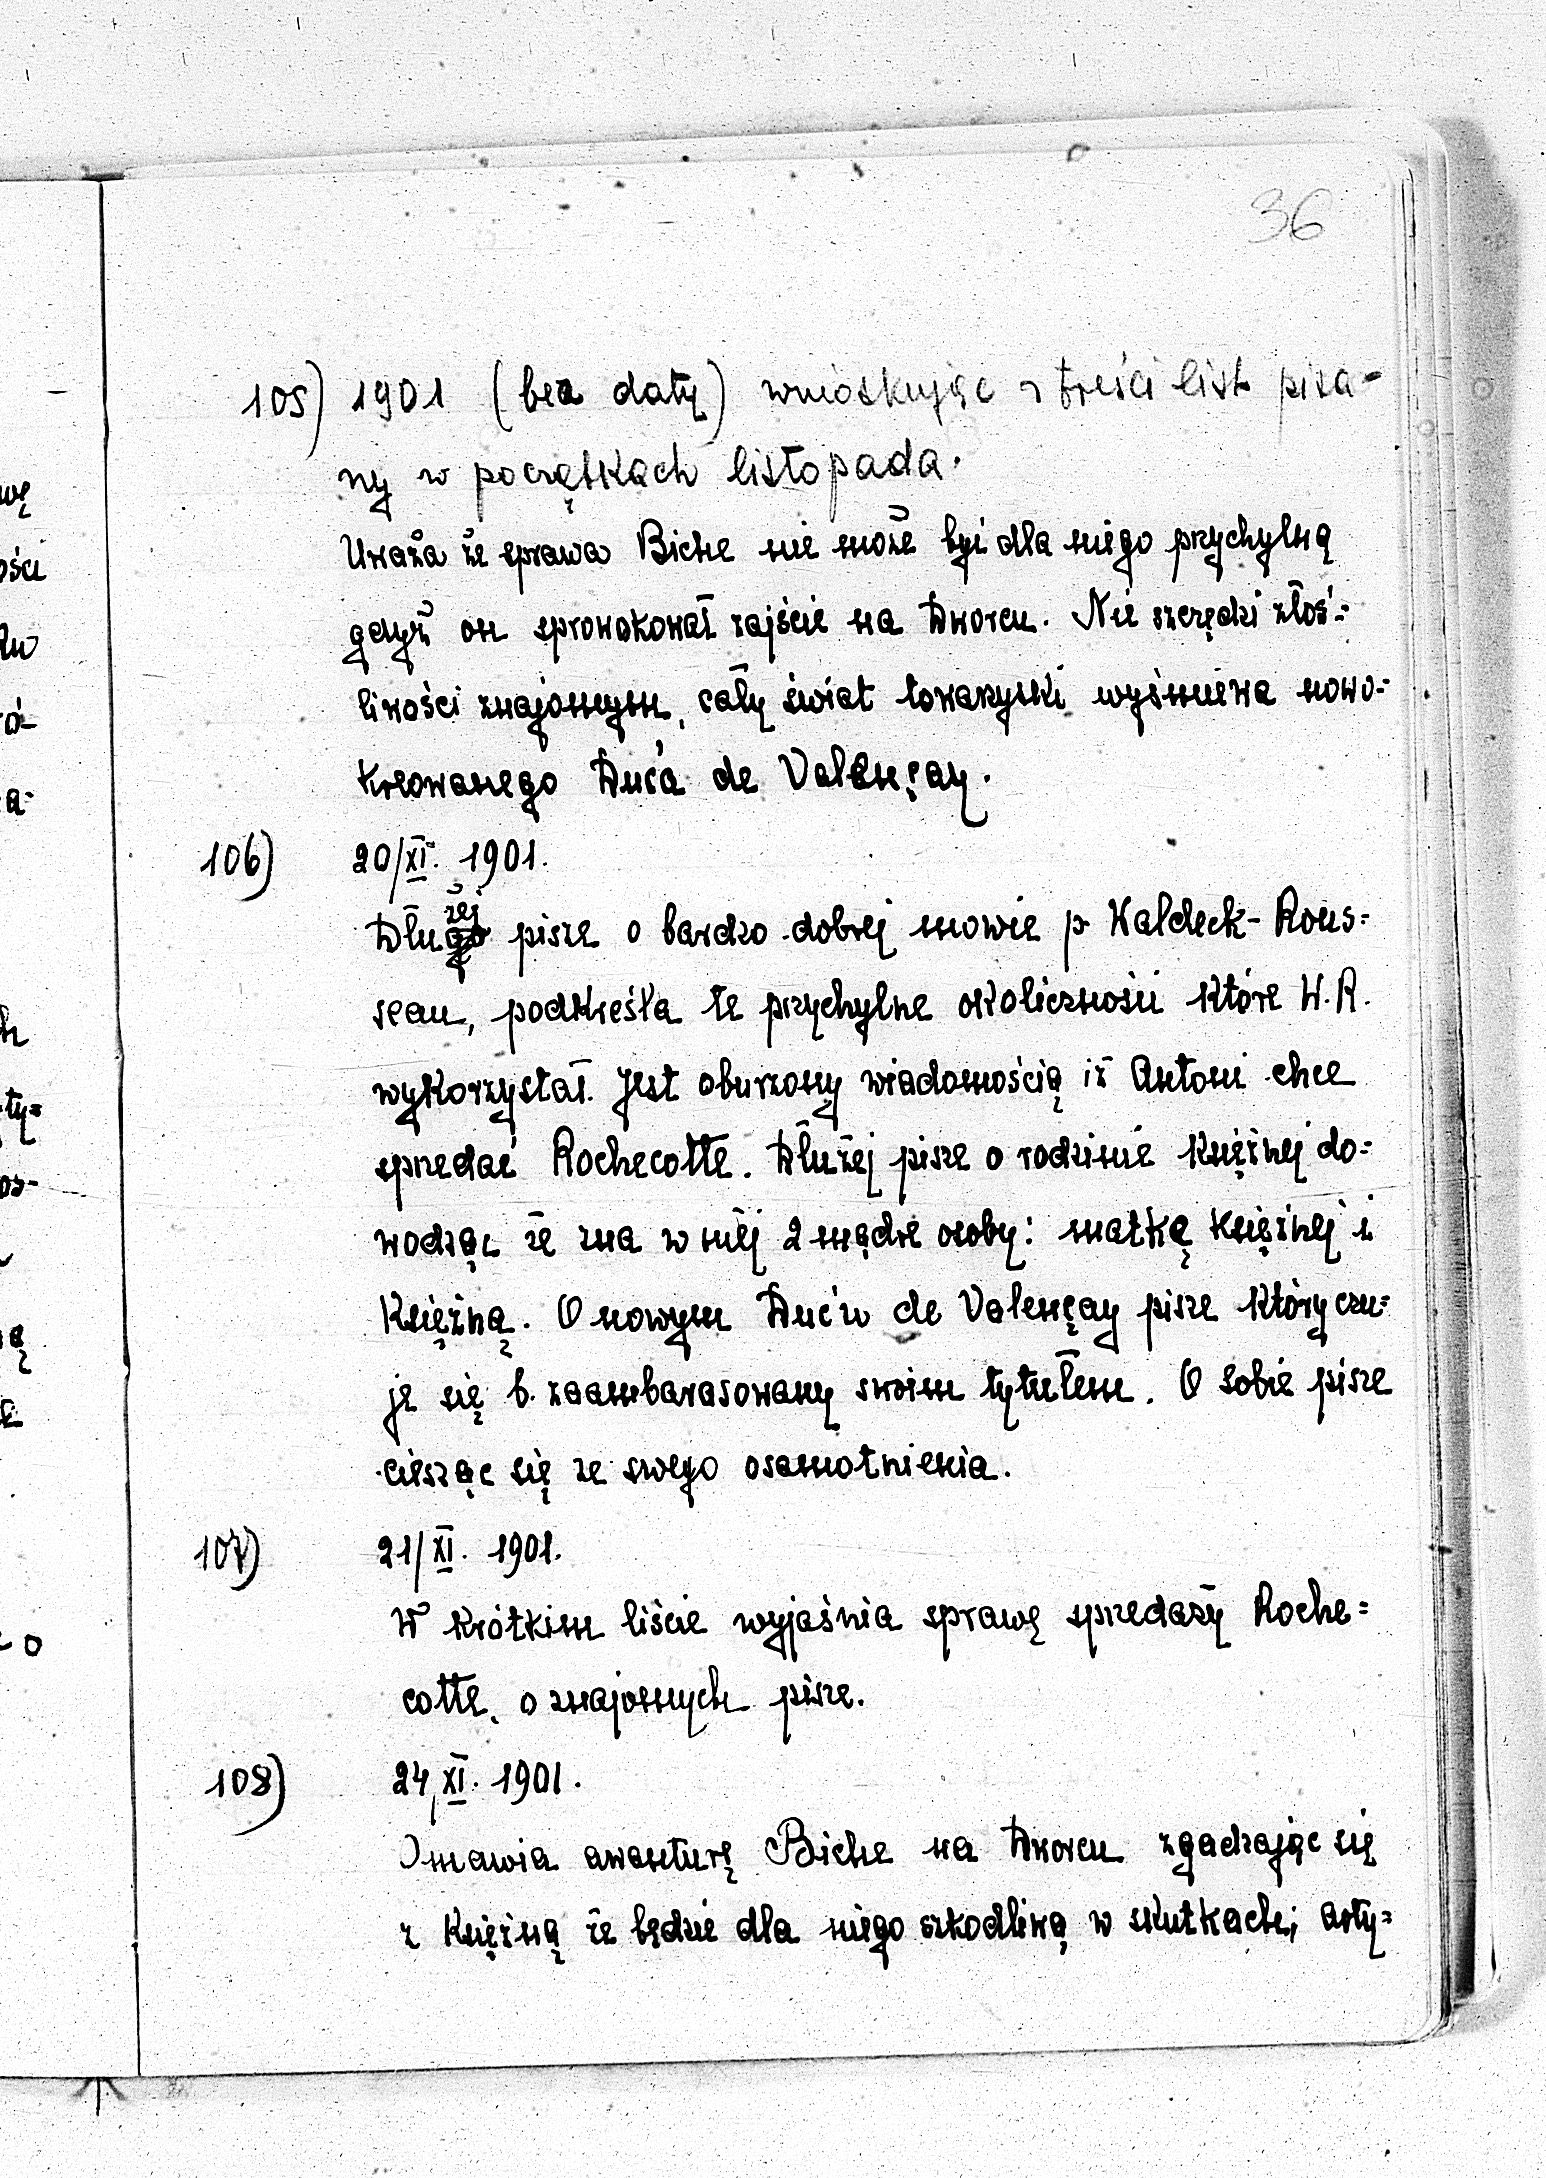 36
105) 1901 (bez daty) wnioskując z treści list pisa-
ny w początkach listopada.
Uważa że sprawa Biche nie może być dla niego przychylną
gdyż on sprowokował zajście na Dworcu. Nie szczędzi złoś=
liwości znajomym, cały świat towarzyski wyśmiewa nowo=
kreowanego Duc'a de Valençay.
106) 20/XI. 1901.
Dłużej pisze o bardzo dobrej mowie p. Waldeck-Rous=
seau, podkreśla te przychylne okoliczności które W.R.
wykorzystał. Jest oburzony wiadomością iż Antoni chce
sprzedać Rochecotte. Dłużej pisze o rodzinie Księżnej do=
wodząc że zna w niej 2 mądre osoby: matkę Księżnej i
Księżną. O nowym Duc'u de Valençay pisze który czu=
je się b. zaambarasowany swoim tytułem. O sobie pisze
ciesząc się ze swego osamotnienia.
107) 21/XI. 1901.
W krótkim liście wyjaśnia sprawę sprzedaży Roche=
cotte, o znajomych pisze.
108) 24/XI. 1901.
Omawia awanturę Biche na Dworcu zgadzając się
z Księżną że będzie dla niego szkodliwą w skutkach; arty=